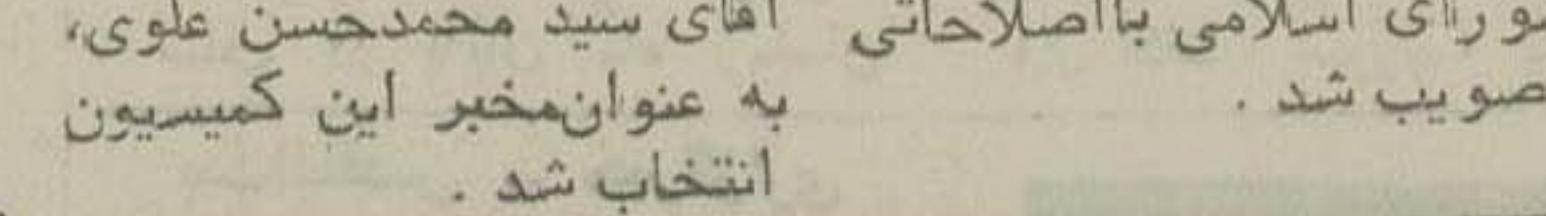 شورای اسلامی با اصلاحاتی
تصویب شد .
آقای سید محمدحسن علوی،
به عنوان مخبر این کمیسیون
انتخاب شد .